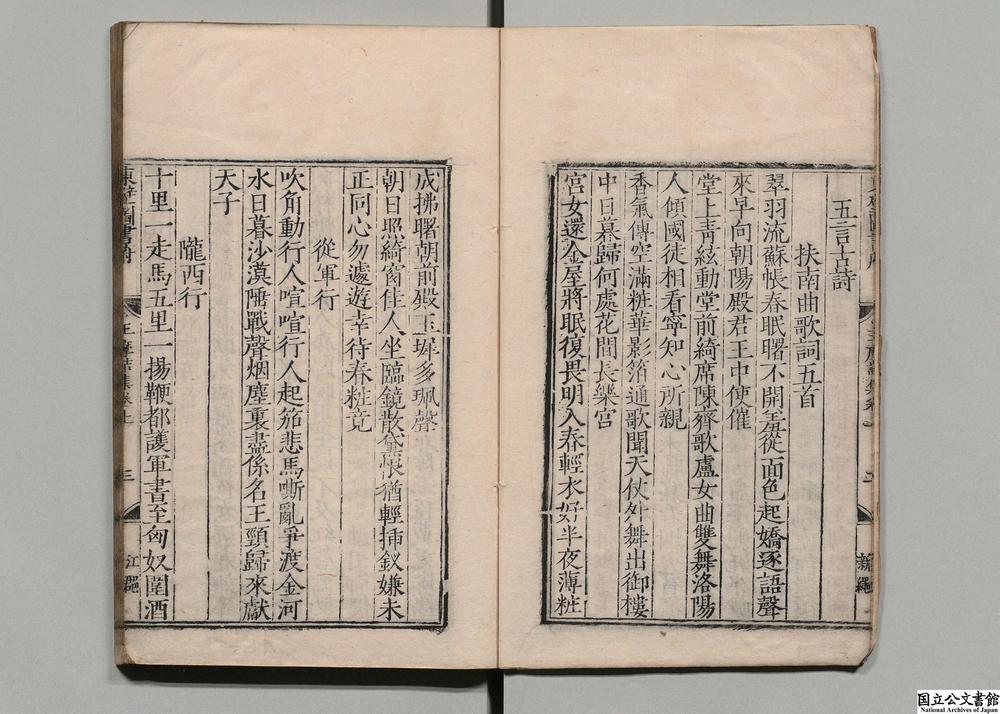 五言古詩
扶南曲歌詞五首
翠羽流蘇帳春眠曙不開羞從面色起嬌逐語聲
來早向朝陽殿君王中使催
堂上青絃動堂前綺席陳齊歌盧女曲雙舞洛陽
人傾國徒相看寧知心所親
香氣傳空滿粧華影箔通歌聞天仗外舞出御樓
中日暮歸何處花間長樂宮
宮女還金屋將眠復畏明入春輕衣好半夜薄粧
成拂曙朝前殿玉墀多珮聲
朝日照綺窗佳人坐臨鏡散黛恨猶輕插釵嫌未
正同心勿遽遊幸待春粧竟
從軍行
吹角動行人喧喧行人起笳悲馬嘶亂爭渡金河
水日暮沙漠陲戰聲烟塵裏盡係名王頸歸來獻
天子
隴西行
十里一走馬五里一揚鞭都護軍書至匈奴圍酒
東壁圖書府
王摩詰集卷上
三
江郢
国立公文書館
National Archives of Japan